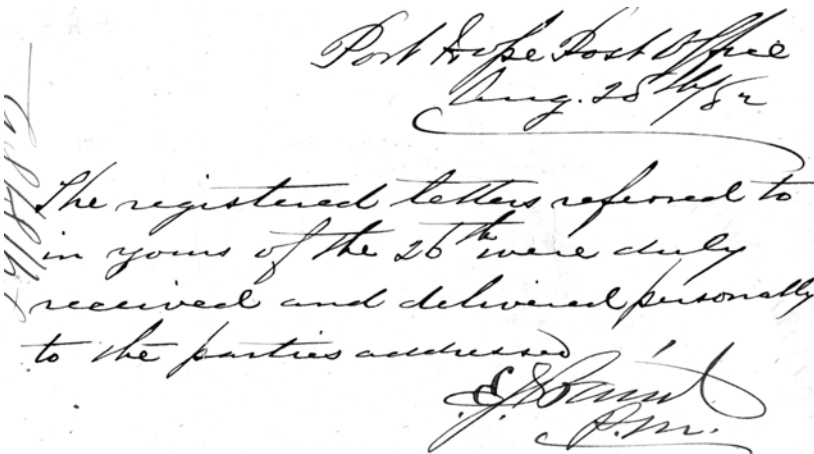 Port Hope Post Office
Aug. 28th/82
The registered letters referred to
in yours of the 26th were duly
received and delivered personally
to the parties addressed
P.M.